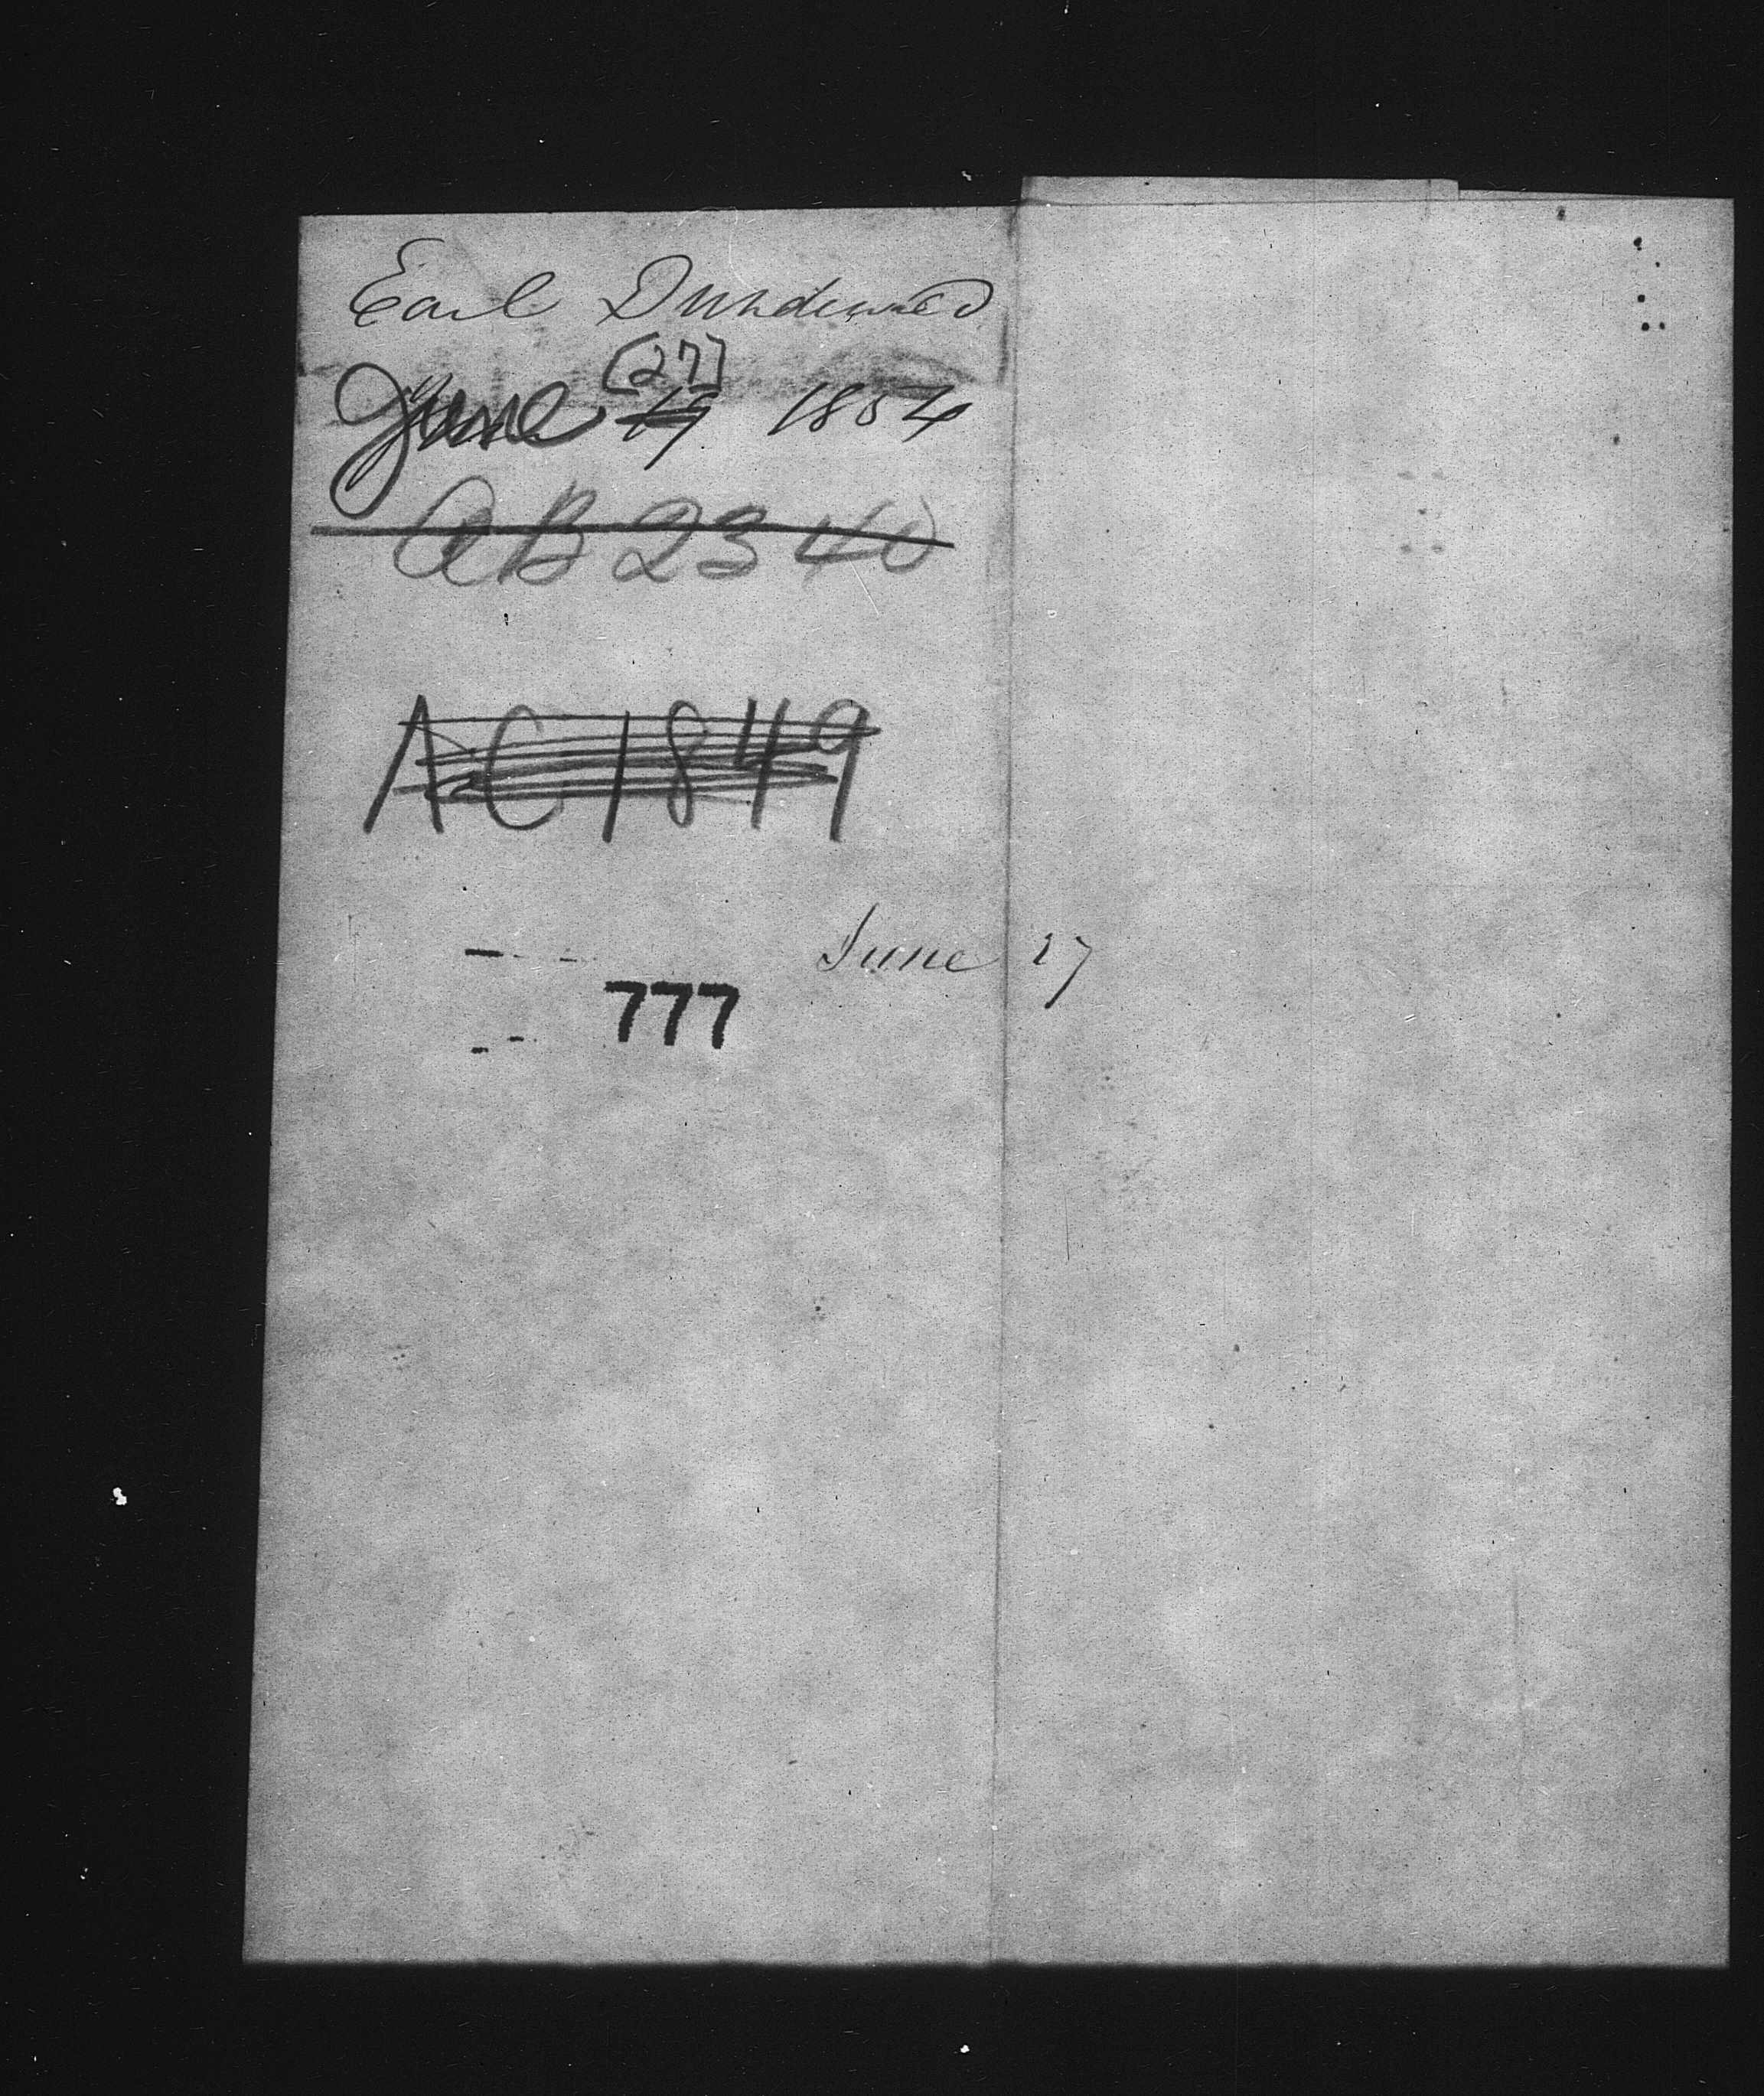 Earl Dundonald
[27]
June 19 1854
AB 2340
AC 1849
June 27
777